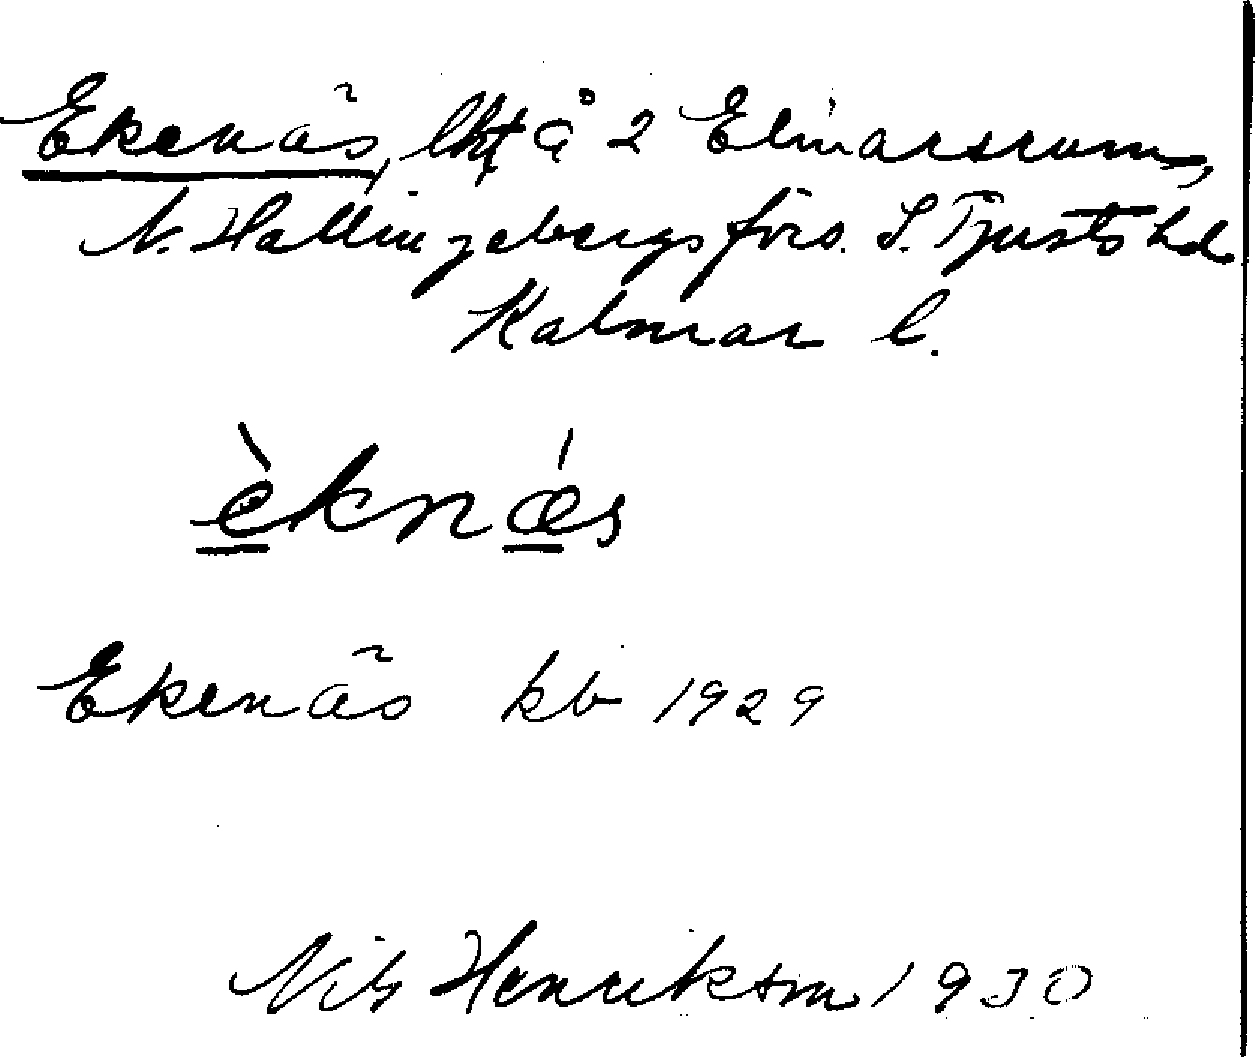 Ekenäs, lht å 2 Elinarsrum,
N. Hallingebergs förs. S. Tjusts hd
Kalmar l.
èknǽs
Ekenäs kb 1929
Nils Henrikson 1930